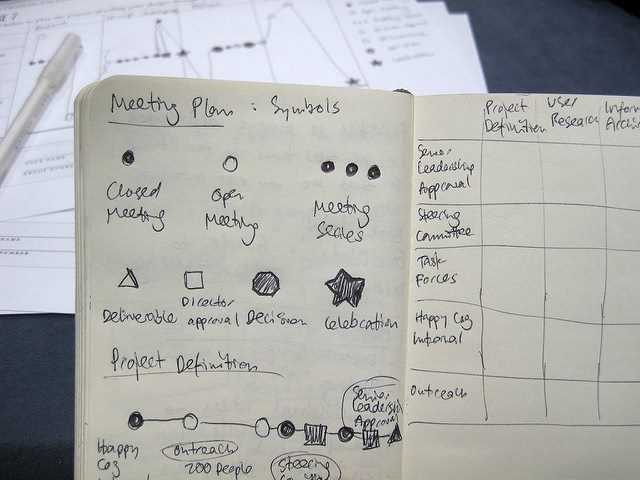 Meeting Plan : Symbols
Closed
Meeting
Open
Meeting
Meeting
Series
Deliverable
Director
approval
Decision
Celebration
Project Definition
Senior
Leadership
Approval
Happy
Cog
outreach
200 people
Steering
Project
Definition
User
Research
Senior
Leadership
Approval
Steering
Committee
Task
Forces
Happy Cog
Internal
Outreach
NAME